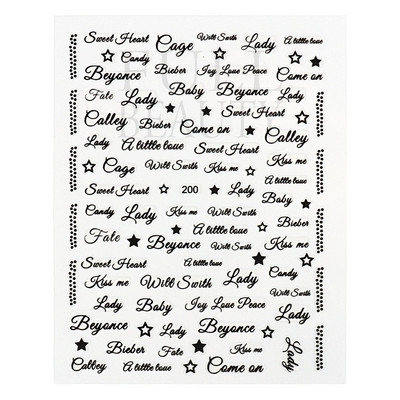 Sweet Heart Cage Will Swith Lady A little loue
Candy
Beyonce Bieber Joy Love Peace Come on
Fate Lady Baby Beyonce Lady
Calley Bieber Come on Calley
Lady A little loue Lady Kiss me
Cage Will Swith Kiss me A little loue
Sweet Heart 200 Lady Baby
Candy Lady Kiss me Lady Kiss me Bieber
Fate Beyonce A little loue Will Swith Kiss me
Sweet Heart A little loue Lady Candy
Kiss me Will Swith Will Swith
Lady Baby Joy Love Peace Lady
Beyonce Beyonce
Calley Bieber Fate Kiss me Lady
A little loue Come on
FULL
BEAUTY